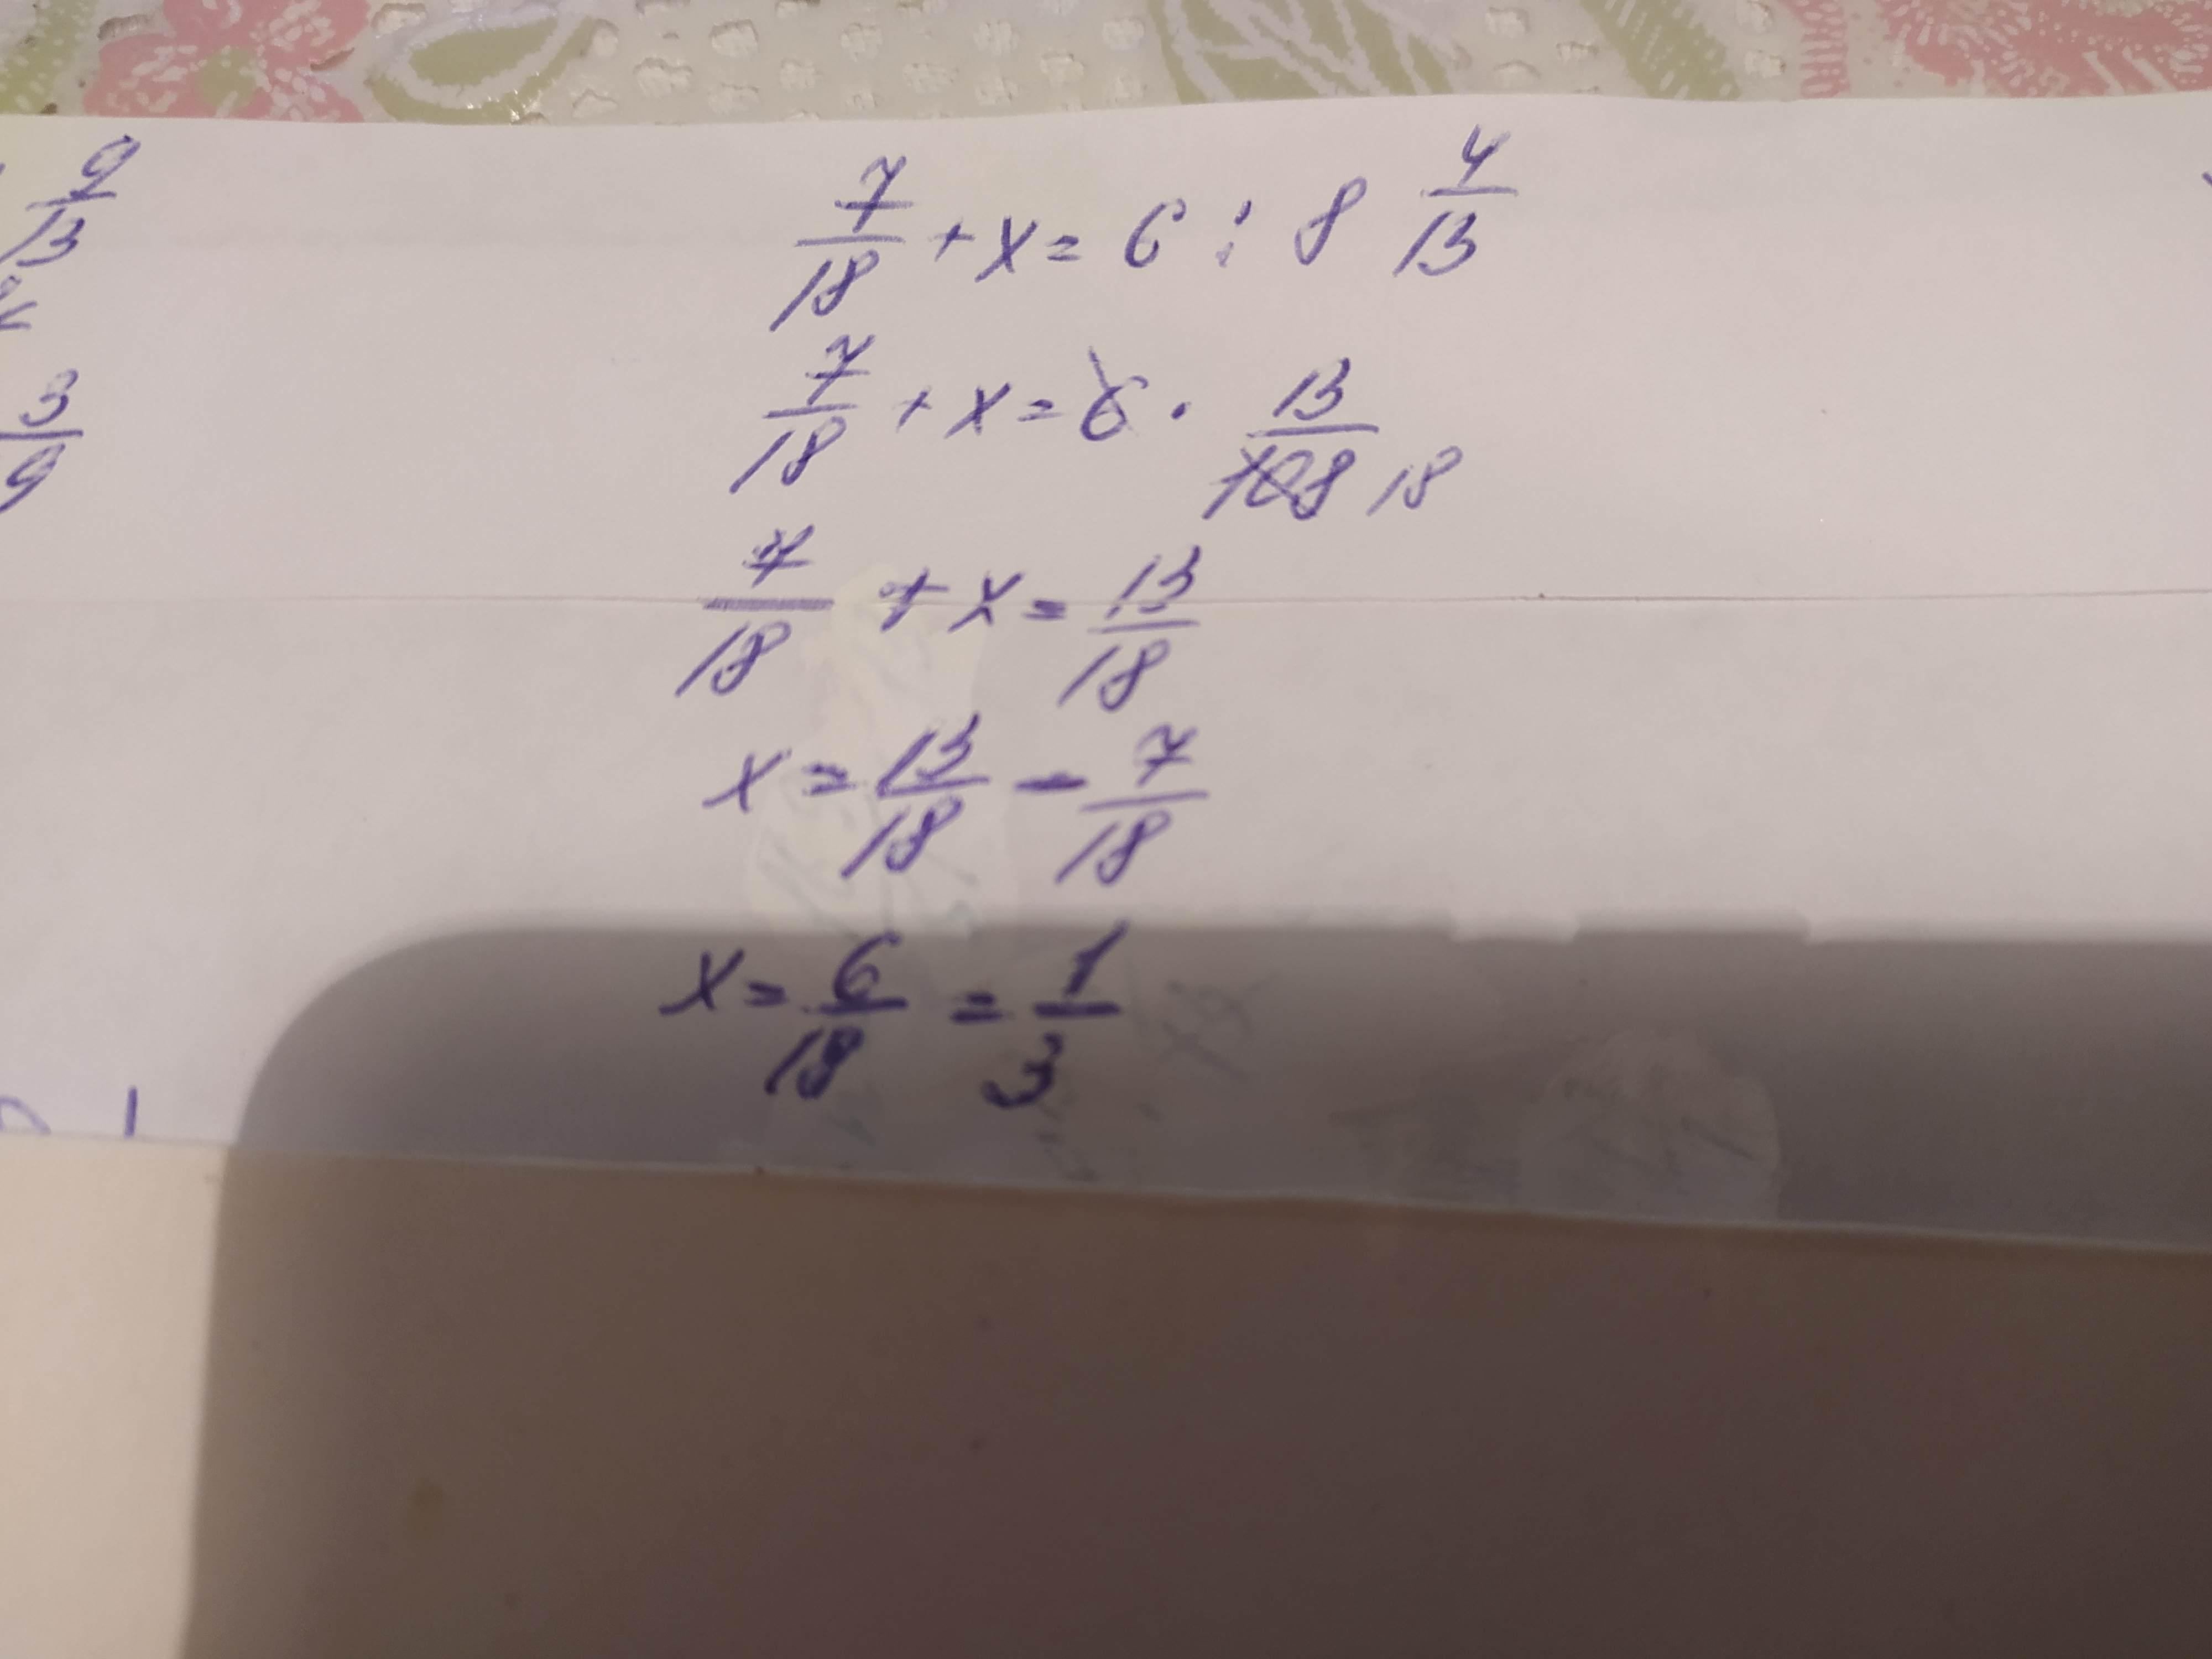 9/13
7/18 + x = 6 : 8 4/13
7/18 + x = 6 · 13/108 18
3/9
7/18 + x = 13/18
x = 13/18 - 7/18
x = 6/18 = 1/3